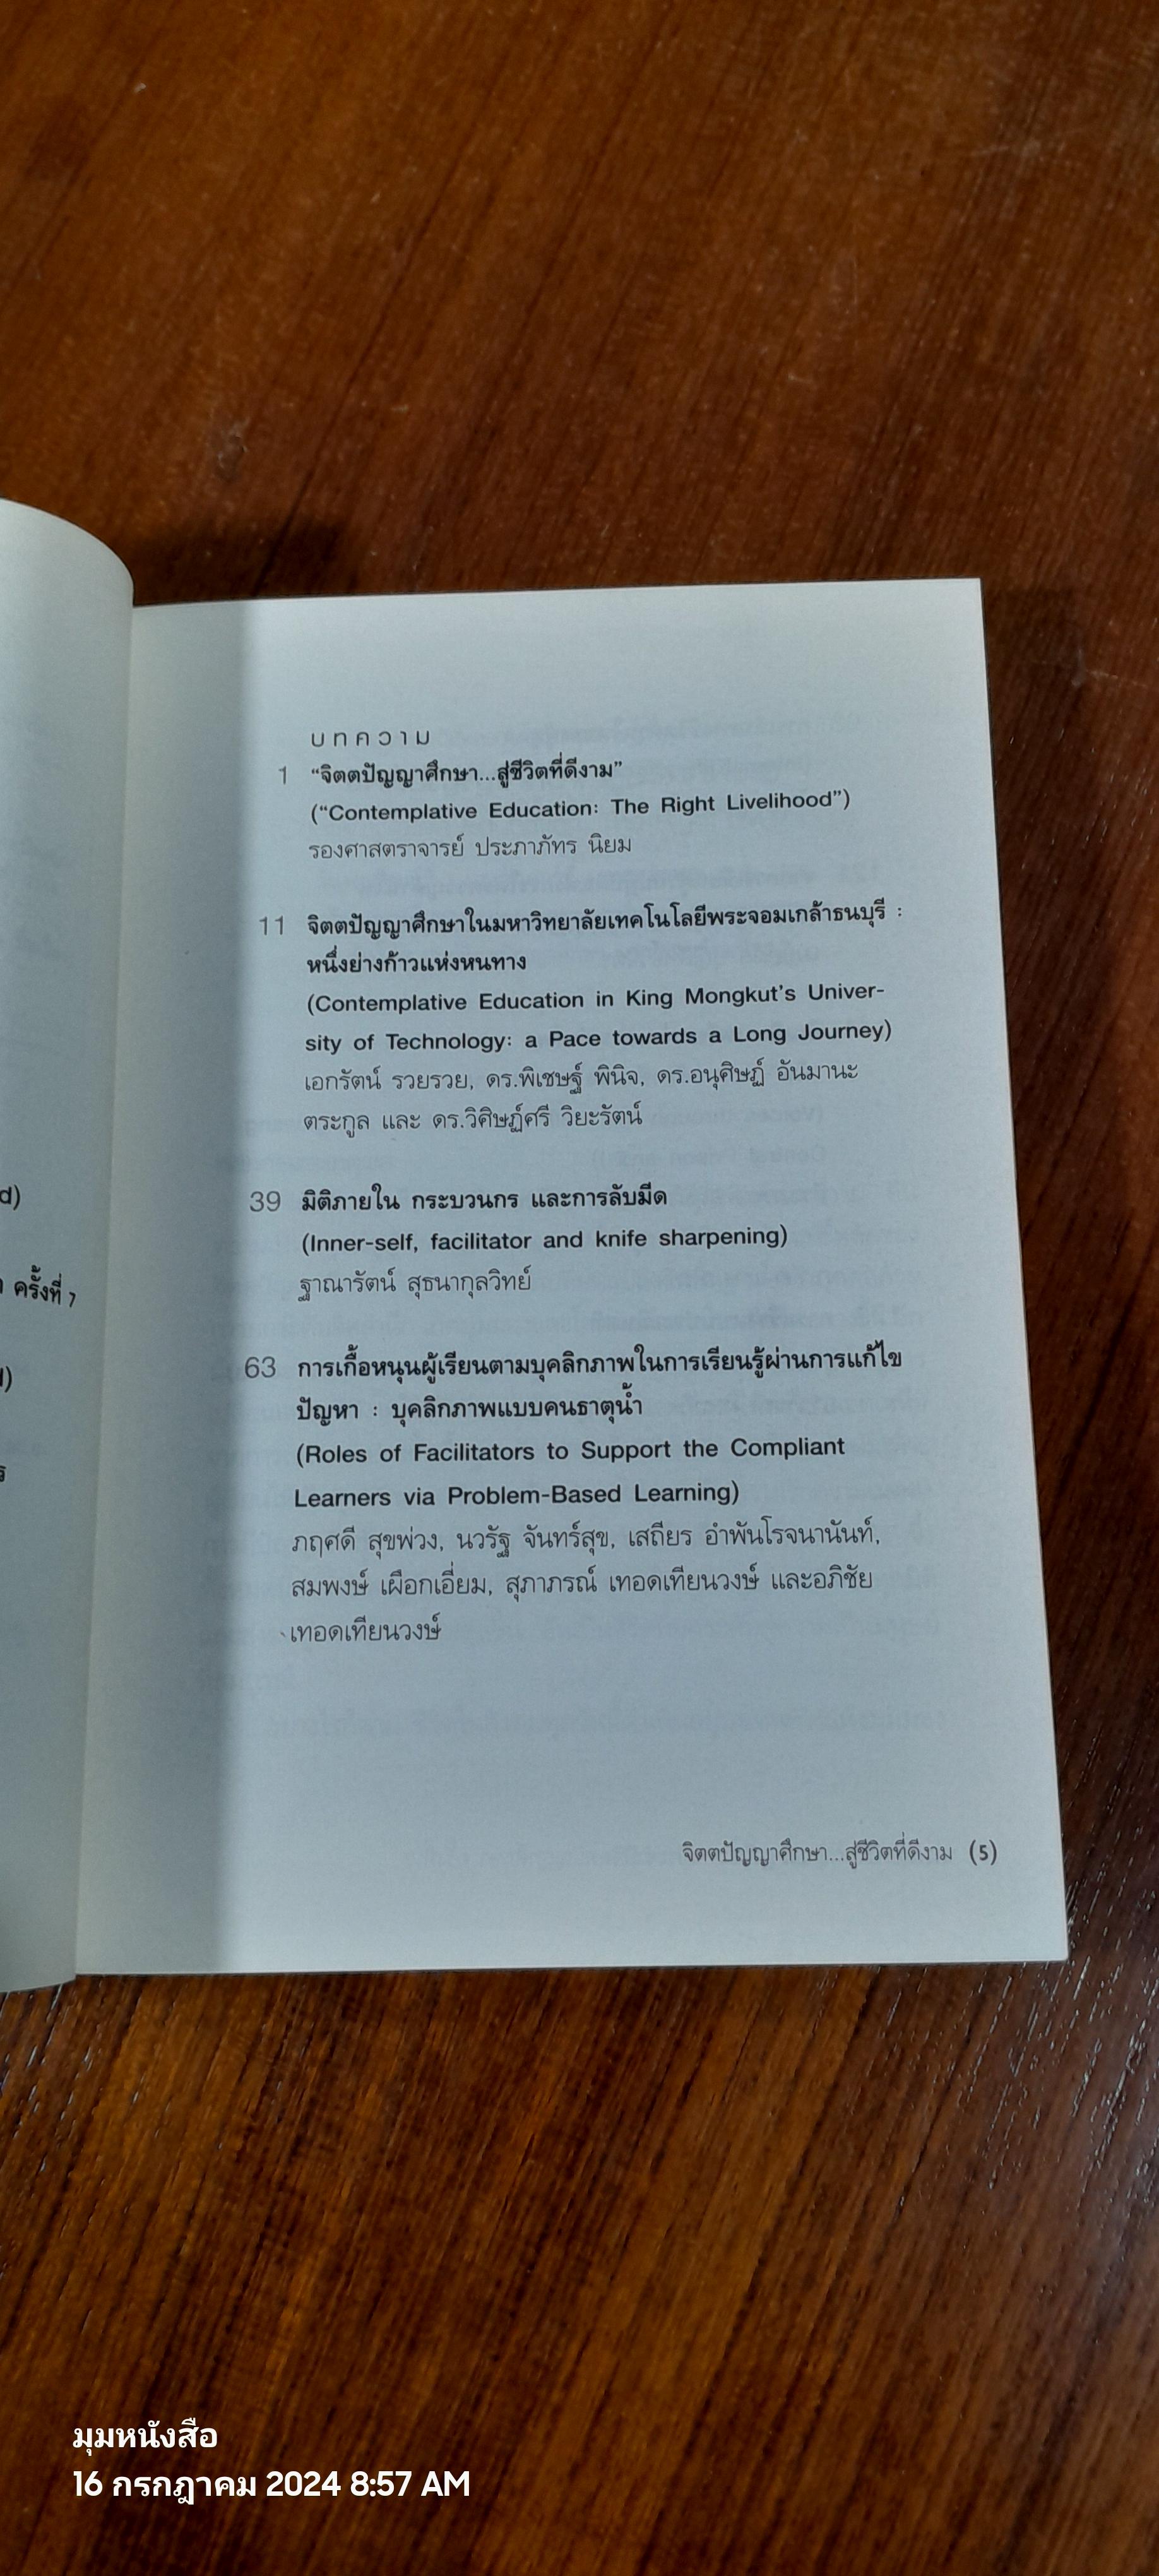 d)
ครั้งที่ 7
บทความ
1 “จิตตปัญญาศึกษา...สู่ชีวิตที่ดีงาม”
(“Contemplative Education: The Right Livelihood”)
รองศาสตราจารย์ ประภาภัทร นิยม
11 จิตตปัญญาศึกษาในมหาวิทยาลัยเทคโนโลยีพระจอมเกล้าธนบุรี :
หนึ่งย่างก้าวแห่งหนทาง
(Contemplative Education in King Mongkut's Univer-
sity of Technology: a Pace towards a Long Journey)
เอกรัตน์ รวยรวย, ดร.พิเชษฐ์ พินิจ, ดร.อนุศิษฏ์ อันมานะ
ตระกูล และ ดร.วิศิษฏ์ศรี วิยะรัตน์
39 มิติภายใน กระบวนกร และการลับมีด
(Inner-self, facilitator and knife sharpening)
ฐาณารัตน์ สุธนากุลวิทย์
63 การเกื้อหนุนผู้เรียนตามบุคลิกภาพในการเรียนรู้ผ่านการแก้ไข
ปัญหา : บุคลิกภาพแบบคนธาตุน้ำ
(Roles of Facilitators to Support the Compliant
Learners via Problem-Based Learning)
ภฤศดี สุขพ่วง, นวรัฐ จันทร์สุข, เสถียร อำพันโรจนานันท์,
สมพงษ์ เผือกเอี่ยม, สุภาภรณ์ เทอดเทียนวงษ์ และอภิชัย
เทอดเทียนวงษ์
จิตตปัญญาศึกษา...สู่ชีวิตที่ดีงาม (5)
มุมหนังสือ
16 กรกฎาคม 2024 8:57 AM